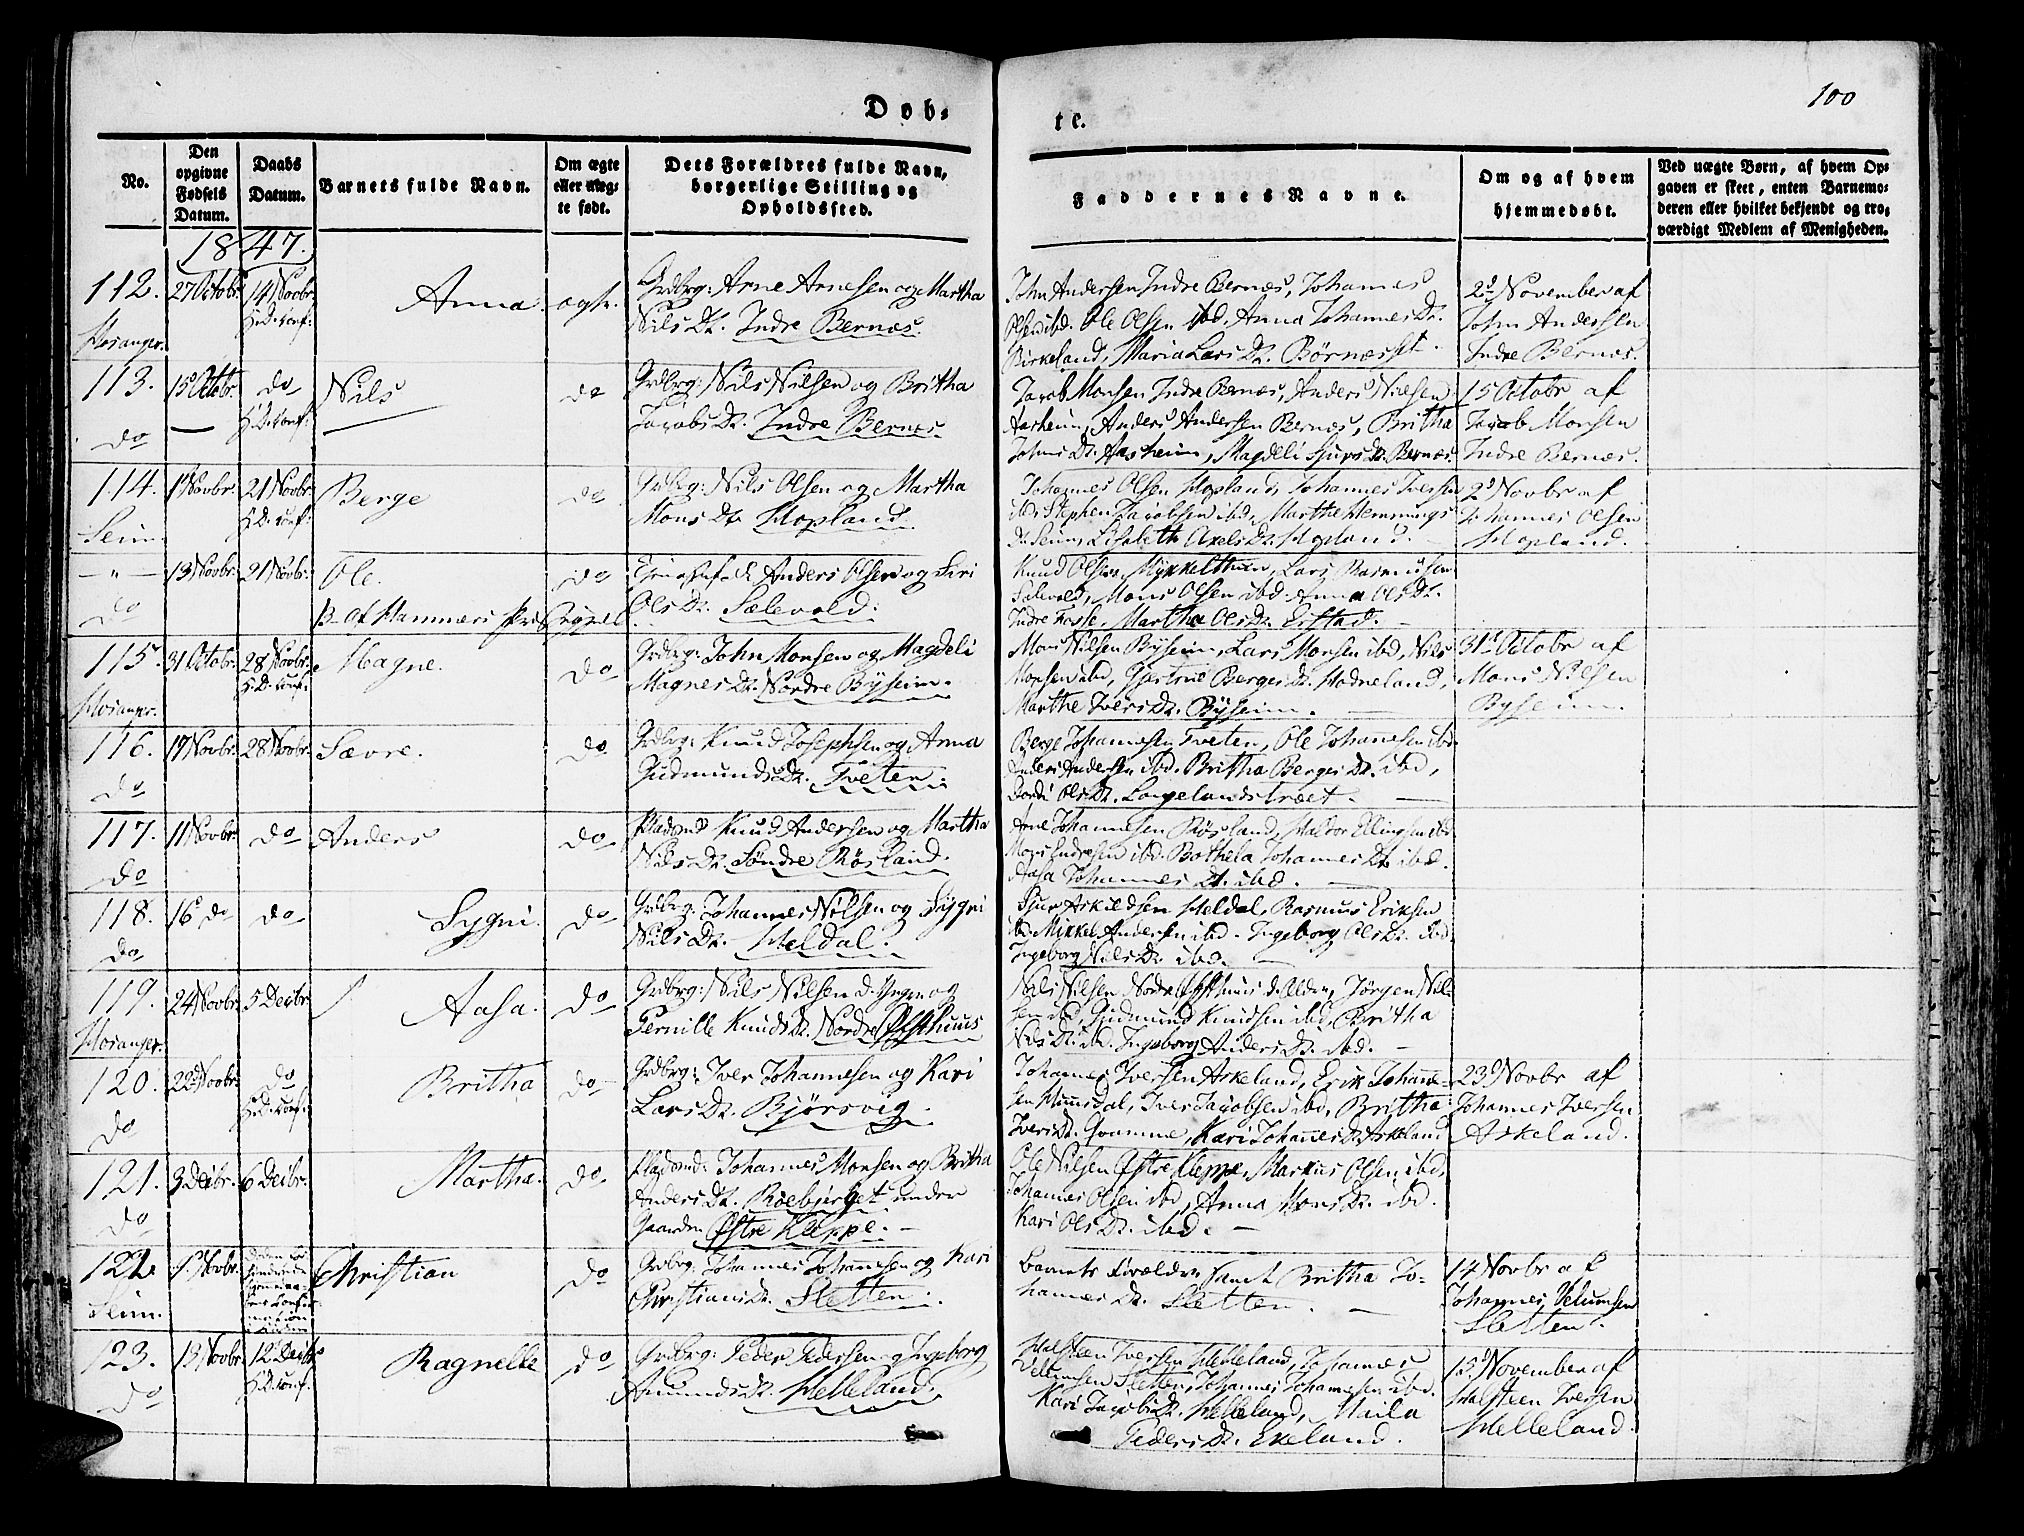 Døb=
te.
100
No.
Den opgivne Fødsels Datum.
Daabs Datum.
Barnets fulde Navn.
Om ægte eller uæg- te født.
Dets Forældres fulde Navn, borgerlige Stilling og Opholdssted.
Faddernes Navne.
Om og af hvem hjemmedøbt.
Ved uægte Børn, af hvem Op- gaven er skeet, enten Barnemo- deren eller hvilket bekjendt og tro- værdigt Medlem af Menigheden.
1847.
112.
Hosanger.
27 Octobr.
14 Novbr.
H.D. conf:
Anna.
ægte.
Grdbrg: Arne Arnesen og Martha
Nils Dr. Indre Bernæs.
John Andersen Indre Bernæs, Johannes
Olsen ibd. Ole Olsen ibd. Anna Johannes Dr.
Birkeland, Maria Lars Dr. Børnæsset.
2d November af
John Andersen
Indre Bernæs.
113.
do
15 Octobr.
do
H.D. conf:
Nils
do
Grdbrg: Nils Nilsen og Britha
Jacobs Dr. Indre Bernæs
Jacob Monsen Indre Bernæs, Anders Nilsen
Aasheim, Anders Andersen Bernæs, Britha
Johns Dr. Aasheim, Magdeli Sjurs Dr. Bernæs.
15 Octobr af
Jacob Monsen
Indre Bernæs.
114.
Seim.
1 Novbr.
21 Novbr.
H.D. conf:
Berge
do
Grdbrg: Nils Olsen og Martha
Mons Dr. Hopland.
Johannes Olsen Hopland, Johannes Iversen
ibd. Stephen Jacobsen ibd. Marthe Hemmings
Dr. Seim, Lisabeth Axels Dr. Hopland.
2d Novbr af
Johannes Olsen
Hopland.
— " —
do
13 Novbr.
21 Novbr.
Ole.
do
Anders Olsen og Siri
Ols Dr. Sælevold.
Knud Olsen Mykkelthuun, Lars Rasmusen
Sælevold, Mons Olsen ibd. Anna Ols Dr.
Indre Fosse, Martha Ols Dr. Erstad.
115.
Hosanger.
31 Octobr.
28 Novbr.
H.D. conf:
Magne.
do
Grdbrg: John Monsen og Magdeli
Magnes Dr. Nordre Byseim.
Mons Nilsen Byseim, Lars Monsen ibd, Nils
Monsen ibd, Gjertrue Berges Dr. Hodneland,
Marthe Ivers Dr. Byseim.
31d Octobr af
Mons Nilsen
Byseim.
116.
do
17 Novbr.
28 Novbr.
Sævre.
do
Grdbrg: Knud Josephsen og Anna
Gudmunds Dr. Tveten.
Berge Johannesen Tveten, Ole Johannesen ibd.
Anders Andersen ibd. Britha Berges Dr. ibd,
Dordi Ols Dr. Langelandstræet.
117.
do
11 Novbr.
do
Anders
do
Pladsmd: Knud Andersen og Martha
Nils Dr. Søndre Røsland.
Arne Johannesen Røsland, Haldor Ellingsen ibd.
Mons Endresen ibd. Bothela Johannes Dr. ibd.
Aasa Johannes Dr. ibd.
118.
do
16 do
do
Sygni.
do
Grdbrg: Johannes Nilsen og Sygni
Nils Dr. Heldal.
Sjur Askildsen Heldal, Rasmus Eriksen
ibd. Mikkel Andersen ibd. Ingeborg Ols Dr. ibd.
Ingeborg Nils Dr. ibd.
119.
Hosanger.
24 Novbr.
5 Decbr.
Aasa.
do
Grdbrg: Nils Nilsen d. Yngre og
Pernille Knuds Dr. Nordre Øfsthuus
Nils Nilsen Nordre Øfsthuus d. Eldre, Jørgen Nil-
sen ibd. Gudmund Knudsen ibd, Britha
Nils Dr. ibd. Ingeborg Anders Dr. ibd.
120.
do
22 Novbr.
do
H.D. conf:
Britha
do
Grdbrg: Iver Johannesen og Kari
Lars Dr. Bjørsvig.
Johannes Iversen Askeland, Erik Johanne-
sen Hunsdal, Iver Jacobsen ibd, Britha
Ivers Dr. Qvamme, Kari Johannes Dr. Askeland
23d Novbr af
Johannes Iversen
Askeland.
121.
do
3 Decbr.
6 Decbr.
Martha.
do
Pladsmd: Johannes Monsen og Britha
Anders Dr. Roebjerget under
Gaarden Østre Kleppe.
Ole Nilsen Østre Kleppe, Markus Olsen ibd,
Johannes Olsen ibd, Anna Mons Dr. ibd.
Kari Ols Dr. ibd.
122.
Seim.
Novbr.
Christian
do
Grdbrg: Johannes Johannesen og Kari
Christians Dr. Sletten.
Barnets Forældre samt Britha Jo-
hannes Dr. Sletten.
14 Novbr af
Johannes Velumsen
Sletten.
123.
do
13 Novbr.
12 Decbr.
H.D. conf:
Ragnelle
do
Grdbrg: Peder Pedersen og Ingeborg
Amunds Dr. Helleland.
Halsteen Iversen Helleland, Johannes
Velumsen Sletten, Johannes Johannesen ibd.
Kari Jacobs Dr. Helleland, Maila
Peders Dr. Ekeland.
15d November af
Halsteen Iversen
Helleland.